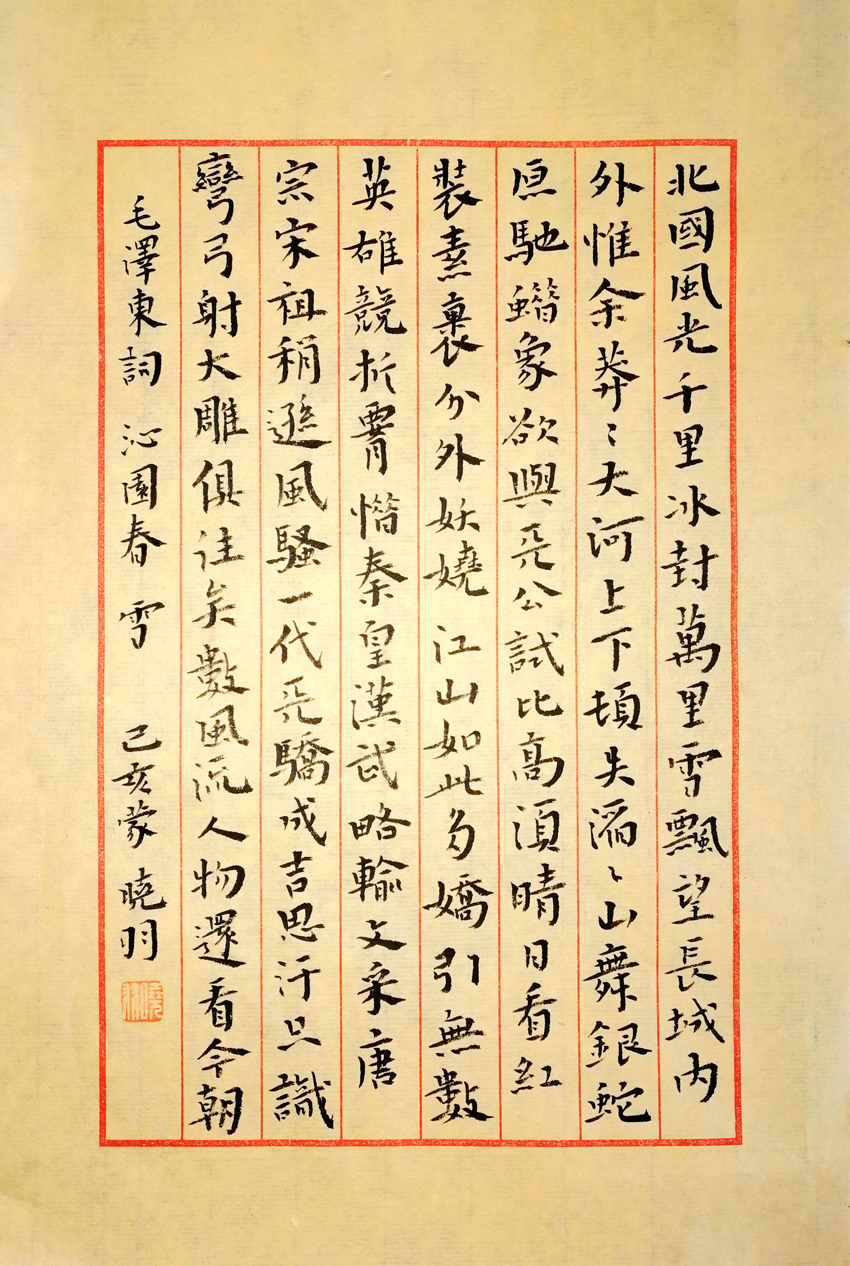 北國風光千里冰封萬里雪飄望長城内
外惟余莽〻大河上下頓失滔〻山舞銀蛇
原馳蠟象欲與天公試比高須晴日看紅
裝素裹分外妖嬈江山如此多嬌引無數
英雄競折霄惜秦皇漢武略輸文采唐
宗宋祖稍遜風騷一代天驕成吉思汗只識
彎弓射大雕俱往矣數風流人物還看今朝
毛澤東詞 沁園春 雪 己亥蒙曉羽